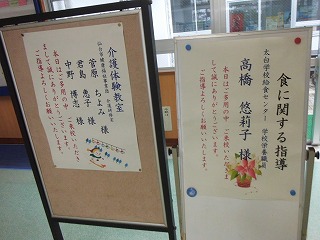 介護体験教室
菅原 ちよみ 様
君島 恵子 様
中野 博志 様
本日はご多用の中 ご来校いただき
まして誠にありがとうございます。
ご指導よろしくお願いいたします。
食に関する指導
太白学校給食センター 学校栄養職員
高橋 悠莉子 様
本日はご多用の中 ご来校いただき
まして誠にありがとうございます。
ご指導よろしくお願いいたします。